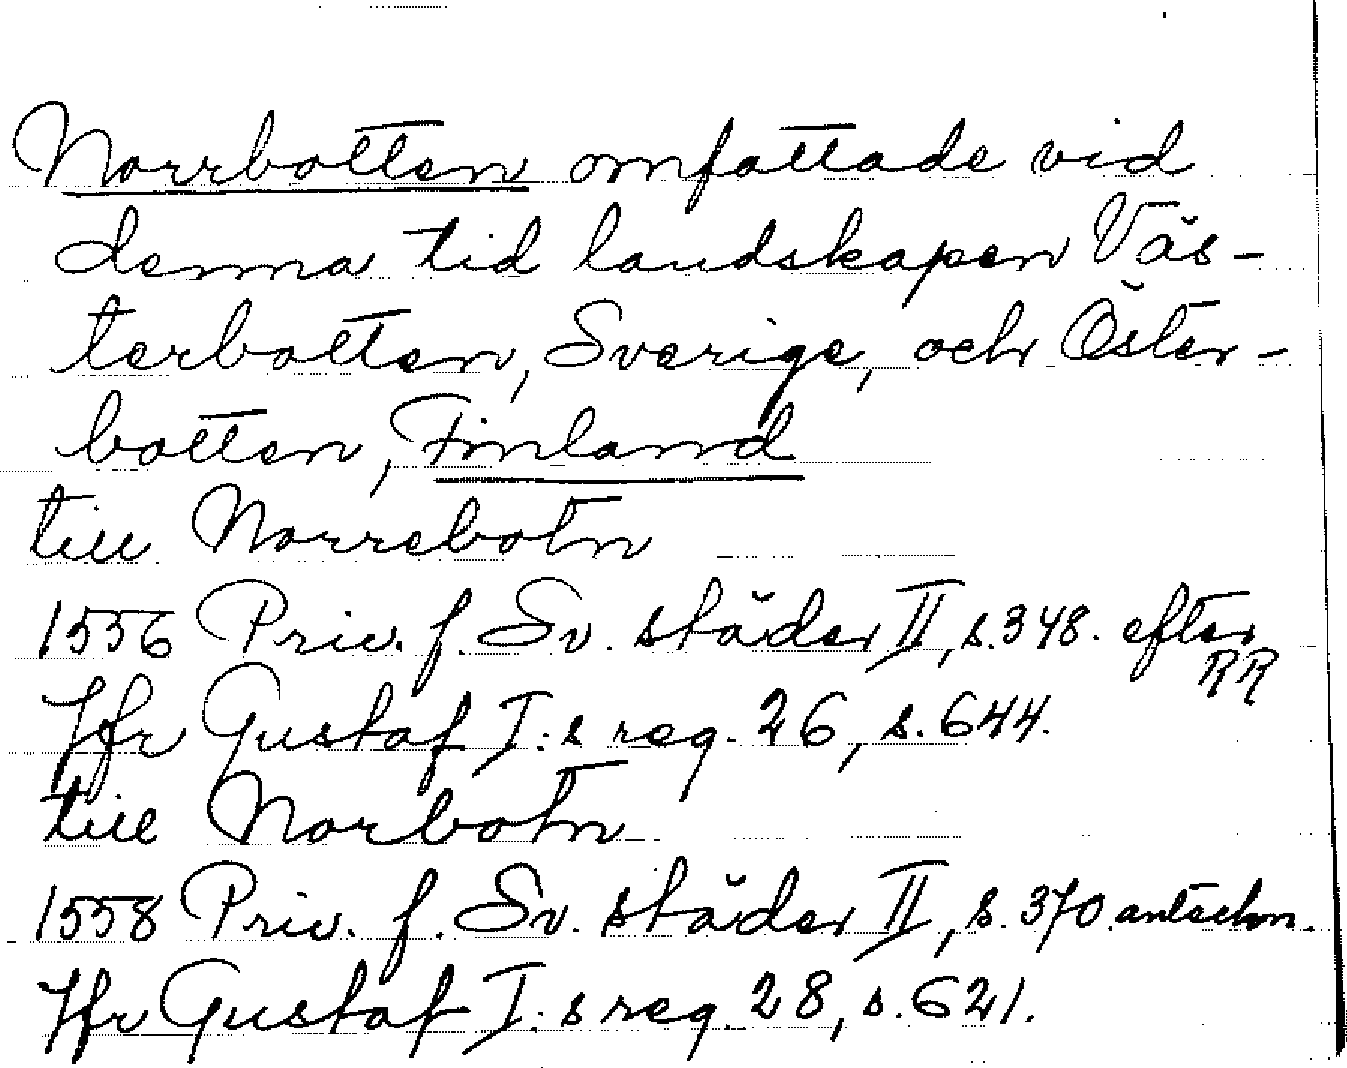 Norrbotten omfattade vid
denna tid landskapen Väs-
terbotten, Sverige, och Öster-
botten, Finland
till Norrebotn
1556 Priv. f. Sv. städer II, s. 348. efter
RR
Jfr Gustaf I:s reg. 26, s. 644.
till Norbotn
1558 Priv. f. Sv. städer II, s. 370 anteckn.
Jfr Gustaf I:s reg. 28, s. 621.